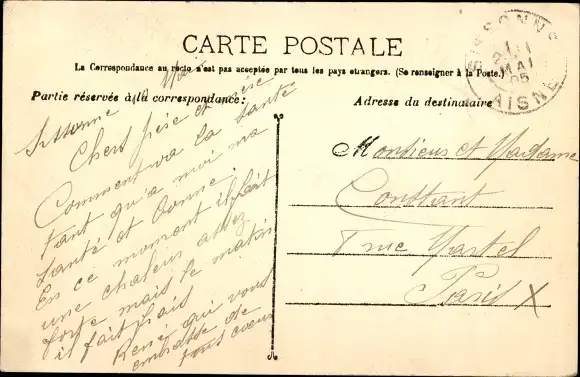 CARTE POSTALE
La Correspondance au recto n'est pas acceptée par tous les pays étrangers. (Se renseigner à la Poste.)
Partie réservée à la correspondance:
Adresse du destinataire
SISSONNE
MAI
05
AISNE
Sissonne
Chers père et mère
Comment va la santé
tant qu'a moi ma
santé et bonne.
En ce moment il fait
une chaleur assez
forte mais le matin
il fait frais
René qui vous
embrasse de
tous coeur
Monsieur et Madame
Constant
7 rue Martel
Paris X